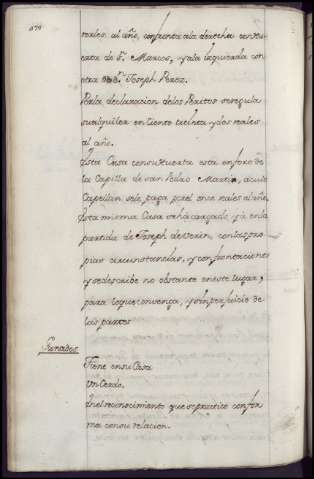 rreales al año, confronta ala derecha con
cassa de Dn. Marcos, yala izquierda con
otra de Dn. Joseph Perez.
Porla declaracion delos Peritos seregula
sualquiler en Ciento treinta ydos reales
al año.
Esta Casa consu Huerta està enforo de
la Capilla de san Pedro Martir, acuio
Capellan sele paga por el once rs. al año,
Esta misma Casa està cargada, ya en la
partida de Joseph de Verin, con las pro
pias circunstancias, y confrontaciones
y sedescribe no obstante en este lugar,
para lo que convenga, y sin perjuicio de
las partes
Ganados
Tiene en su Casa
Un Cerdo.
En el reconocimiento que se practicò confor
ma con su relacion.